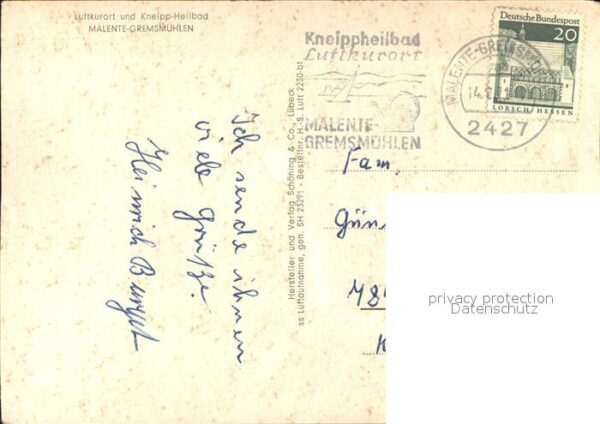 Luftkurort und Kneipp-Heilbad
MALENTE-GREMSMÜHLEN
Ich sende ihnen
viele Grüße.
Heinrich
Hersteller und Verlag Schöning & Co., Lübeck
ss Luftaufnahme, gen. SH 25291 - Bestellnr. H.-S. Luft 2250-b1
Kneippheilbad
Luftkurort
MALENTE-
GREMSMÜHLEN
MALENTE-GREMSMÜHLEN
2427
Deutsche Bundespost
20
LORSCH/HESSEN
Fam.
Gün
78
privacy protection
Datenschutz